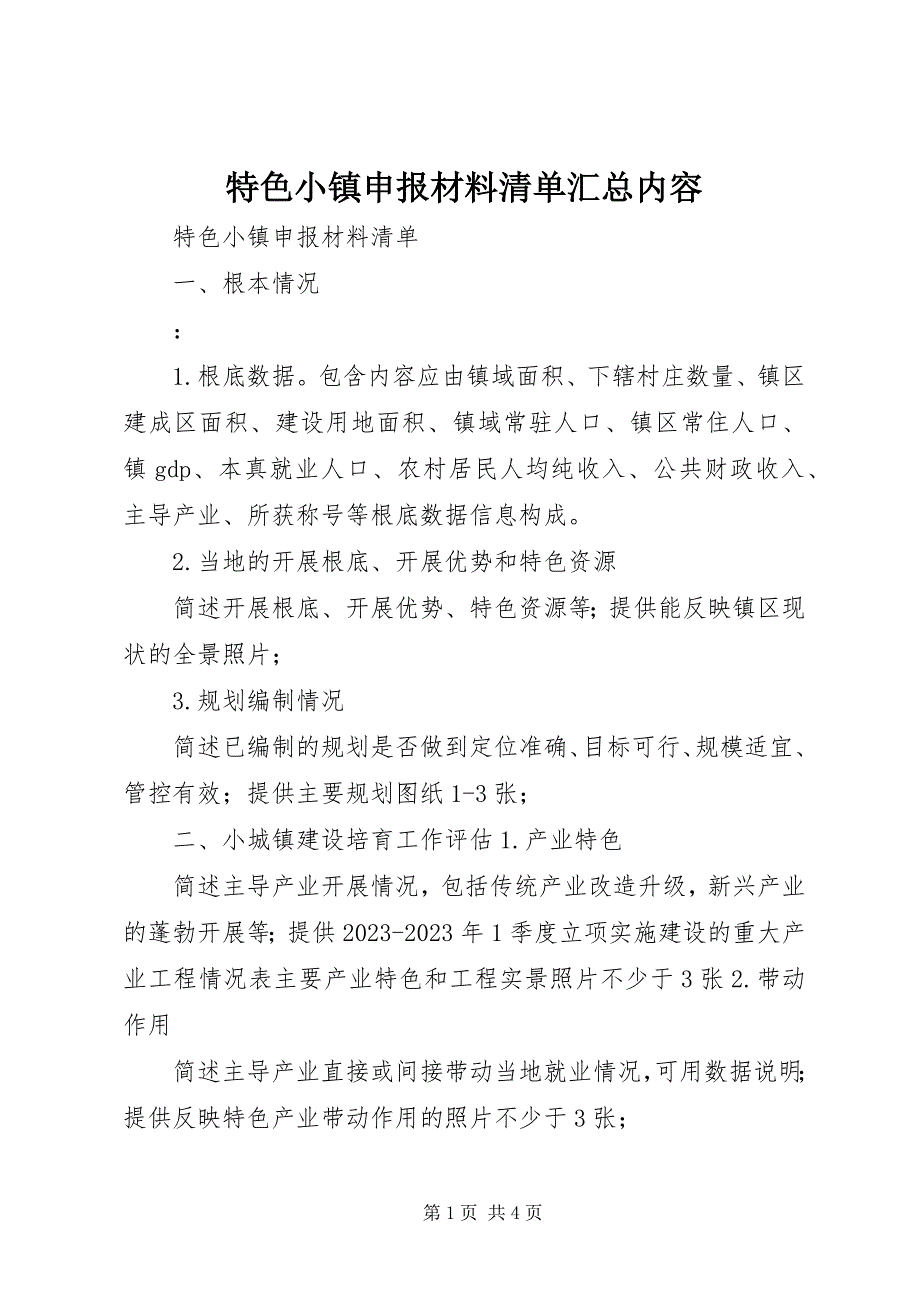 特色小镇申报材料清单汇总内容
特色小镇申报材料清单
一、根本情况
：
1.根底数据。包含内容应由镇域面积、下辖村庄数量、镇区
建成区面积、建设用地面积、镇域常驻人口、镇区常住人口、
镇 gdp、本真就业人口、农村居民人均纯收入、公共财政收入、
主导产业、所获称号等根底数据信息构成。
2.当地的开展根底、开展优势和特色资源
简述开展根底、开展优势、特色资源等；提供能反映镇区现
状的全景照片；
3.规划编制情况
简述已编制的规划是否做到定位准确、目标可行、规模适宜、
管控有效；提供主要规划图纸 1-3 张；
二、小城镇建设培育工作评估 1.产业特色
简述主导产业开展情况，包括传统产业改造升级，新兴产业
的蓬勃开展等；提供 2023-2023 年 1 季度立项实施建设的重大产
业工程情况表主要产业特色和工程实景照片不少于 3 张 2.带动
作用
简述主导产业直接或间接带动当地就业情况，可用数据说明；
提供反映特色产业带动作用的照片不少于 3 张；
第 1 页 共 4 页